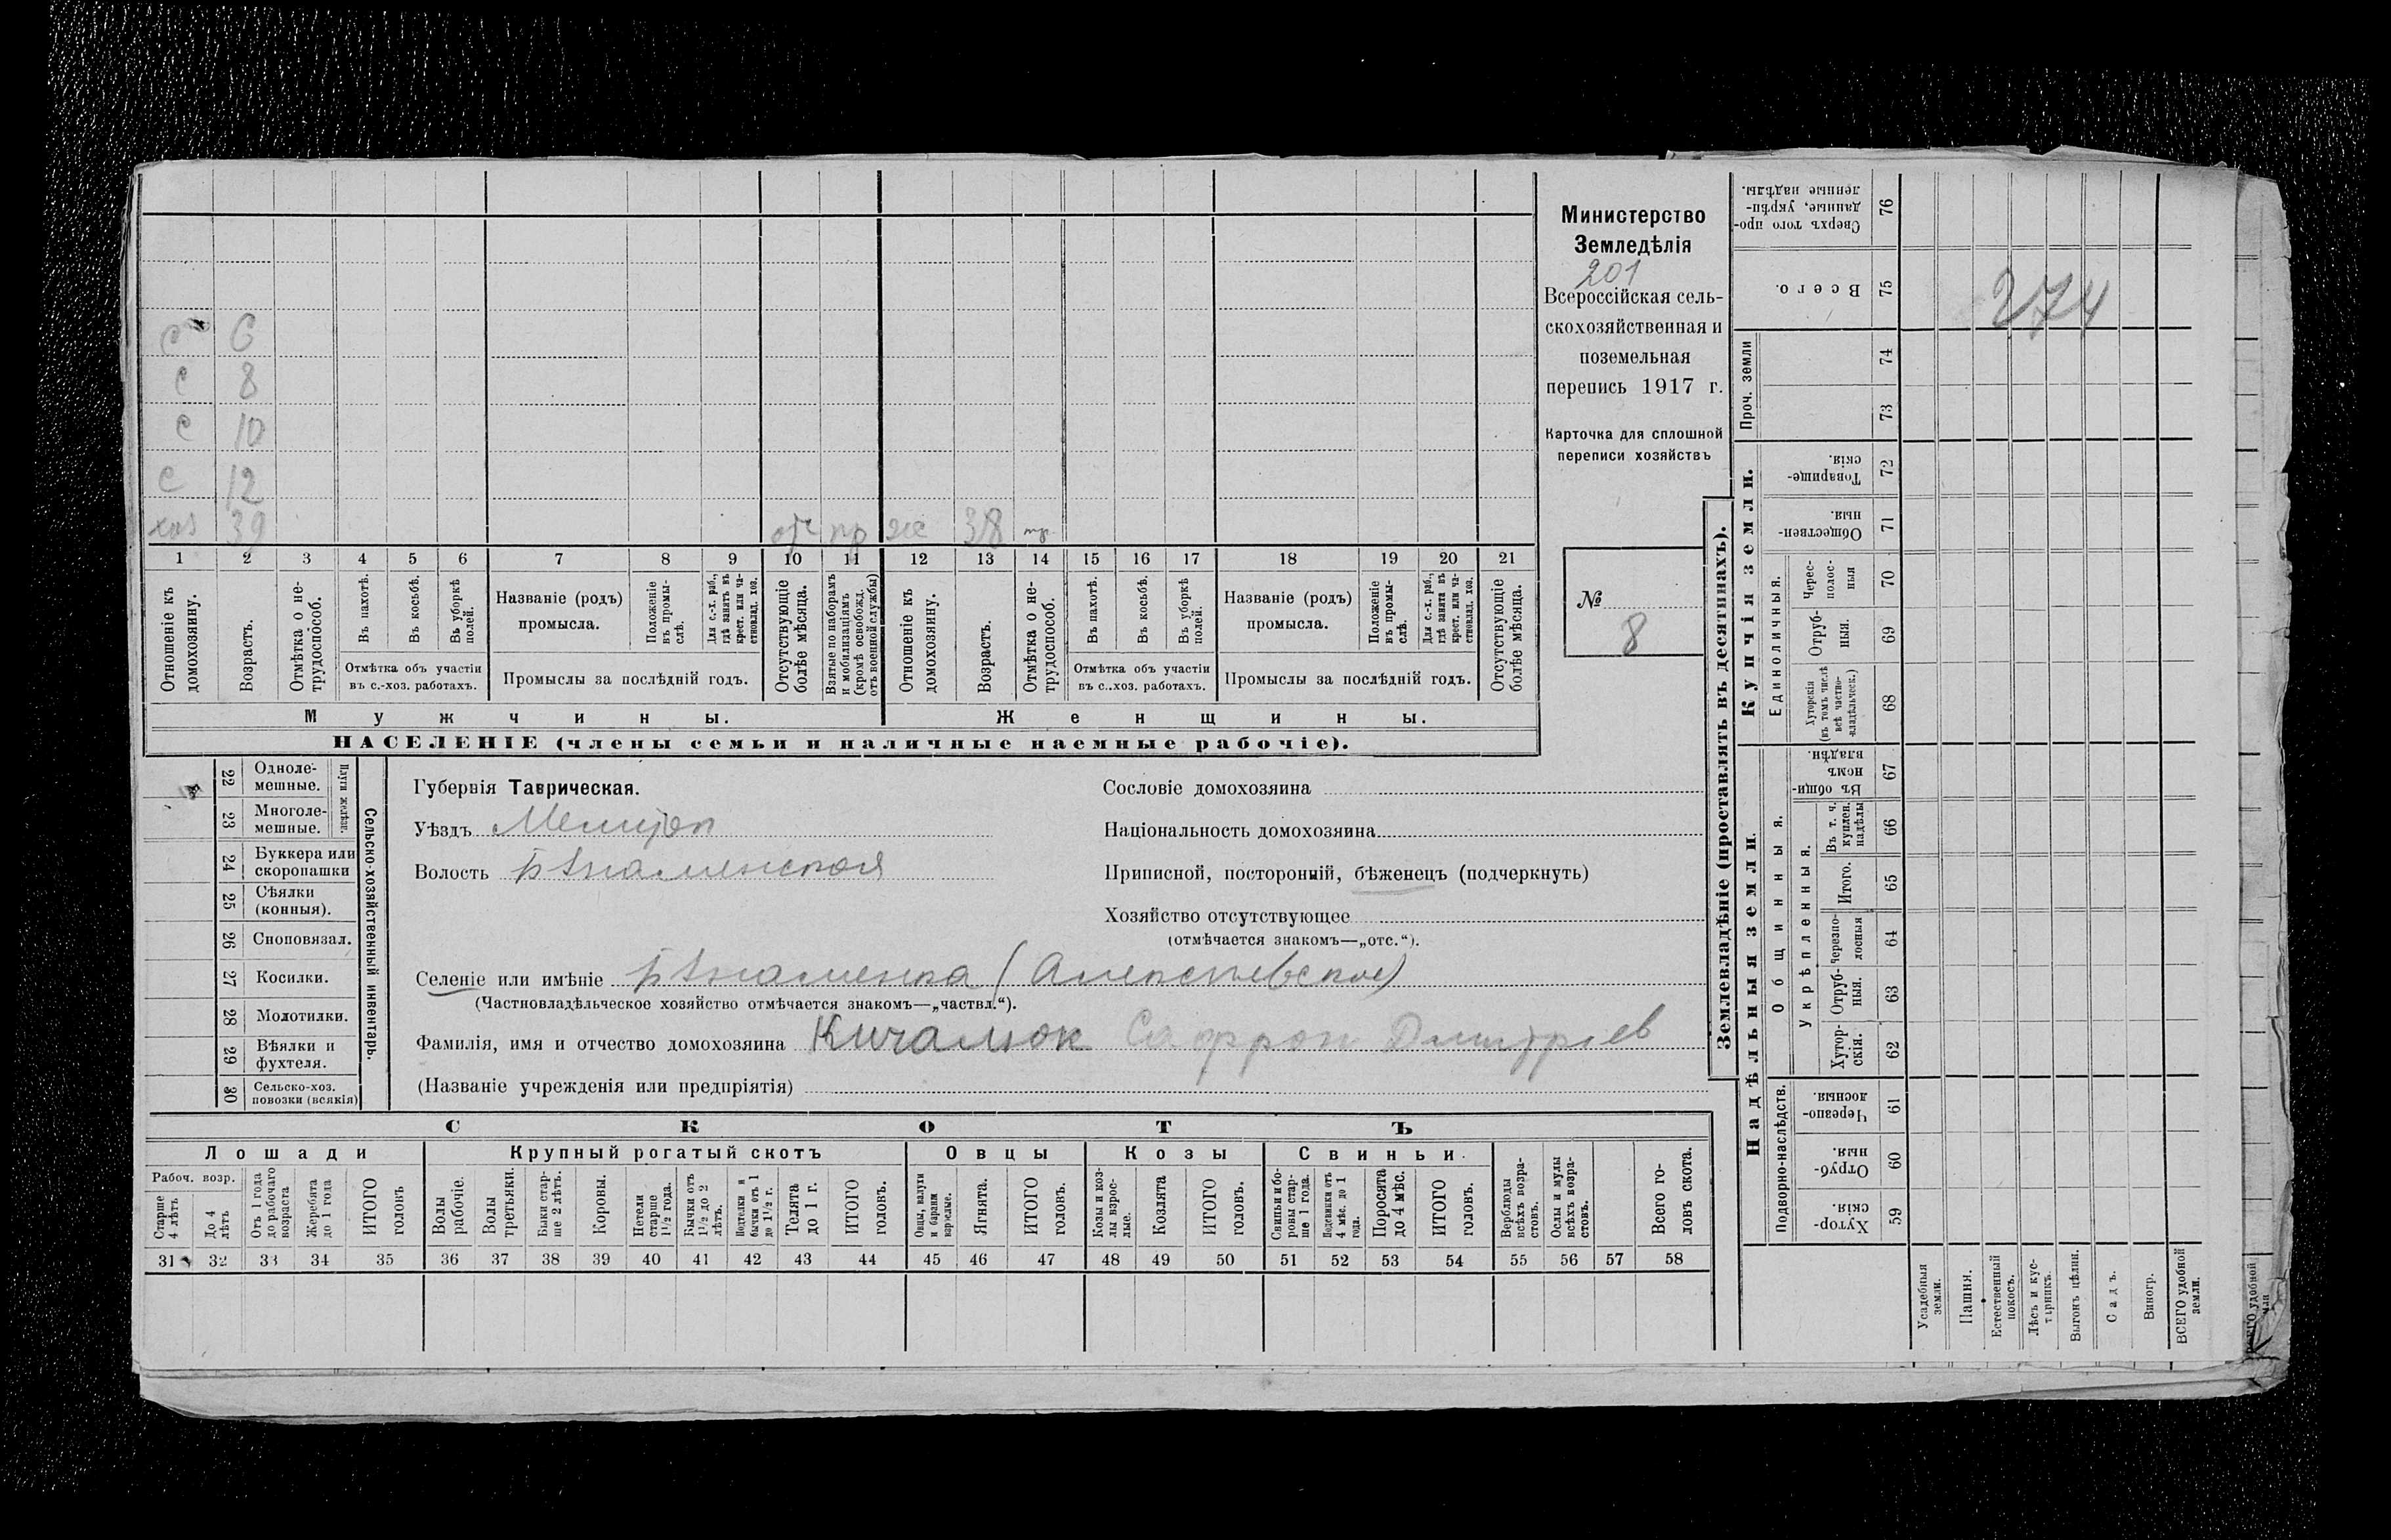 Министерство
Земледѣлія
201
Всероссійская сель-
скохозяйственная и
поземельная
перепись 1917 г.
Карточка для сплошной
переписи хозяйствъ
№
8
274
с 6
с 8
с 10
с 12
хоз 39 отс пр ж 38
1 2 3 4 5 6 7 8 9 10 11 12 13 14 15 16 17 18 19 20 21
Отношеніе къ домохозяину.
Возрастъ.
Отмѣтка о не-трудоспособ.
Въ пахотѣ.
Въ косьбѣ.
Въ уборкѣ полей.
Отмѣтка объ участіи
въ с.-хоз. работахъ.
Названіе (родъ)
промысла.
Положеніе въ промы-слѣ.
Для с.-х. раб., гдѣ занятъ въ крест. или ча-стновлад. хоз.
Промыслы за послѣдній годъ.
Отсутствующіе болѣе мѣсяца.
Взятые по наборамъ и мобилизаціямъ (кромѣ освобожд. отъ военной службы)
Отношеніе къ домохозяину.
Возрастъ.
Отмѣтка о не-трудоспособ.
Въ пахотѣ.
Въ косьбѣ.
Въ уборкѣ полей.
Отмѣтка объ участіи
въ с.-хоз. работахъ.
Названіе (родъ)
промысла.
Положеніе въ промы-слѣ.
Для с.-х. раб., гдѣ занята въ крест. или ча-стновлад. хоз.
Промыслы за послѣдній годъ.
Отсутствующіе болѣе мѣсяца.
Мужчины.
Женщины.
НАСЕЛЕНІЕ (члены семьи и наличные наемные рабочіе).
Сельско-хозяйственный инвентарь.
Плуги желѣзн.
22 Одноле-мешные.
23 Многоле-мешные.
24 Буккера или скоропашки
25 Сѣялки (конныя).
26 Сноповязал.
27 Косилки.
28 Молотилки.
29 Вѣялки и фухтеля.
30 Сельско-хоз. повозки (всякія)
Губернія Таврическая.
Уѣздъ Мелитоп
Волость Знаменская
Сословіе домохозяина
Національность домохозяина
Приписной, посторонній, бѣженецъ (подчеркнуть)
Хозяйство отсутствующее
(отмѣчается знакомъ—„отс.“).
Селеніе или имѣніе Знаменка (Алексѣевское)
(Частновладѣльческое хозяйство отмѣчается знакомъ—„частвл.“).
Фамилія, имя и отчество домохозяина Кичамюк Сафрон Дмитріев
(Названіе учрежденія или предпріятія)
СКОТЪ
Лошади
Крупный рогатый скотъ
Овцы
Козы
Свиньи.
Рабоч. возр.
Старше 4 лѣтъ
До 4 лѣтъ
Отъ 1 года до рабочаго возраста
Жеребята до 1 года
ИТОГО головъ
Волы рабочіе.
Волы третьяки.
Быки стар-ше 2 лѣтъ.
Коровы.
Нетели старше 1½ года.
Бычки отъ 1½ до 2 лѣтъ.
Подтелки и бычки отъ 1 до 1½ г.
Телята до 1 г.
ИТОГО головъ.
Овцы, валухи и бараны взрослые.
Ягнята.
ИТОГО головъ.
Козы и коз-лы взрос-лые.
Козлята
ИТОГО головъ.
Свиньи и бо-ровы стар-ше 1 года.
Подсвинки отъ 4 мѣс. до 1 года.
Поросята до 4 мѣс.
ИТОГО головъ.
Верблюды всѣхъ возра-стовъ.
Ослы и мулы всѣхъ возра-стовъ.
Всего го-ловъ скота.
31 32 33 34 35 36 37 38 39 40 41 42 43 44 45 46 47 48 49 50 51 52 53 54 55 56 57 58
Землевладѣніе (проставлять въ десятинахъ).
Купчія земли.
Надѣльныя земли.
Сверхъ того про-данные, укрѣп-ленные надѣлы. 76
Всего. 75
Проч. земли
74
73
Товарище-скія. 72
Обществен-ныя. 71
Единоличныя.
Черес-полос-ныя 70
Отруб-ныя. 69
Хуторскія (въ томъ числѣ всѣ частно-владѣльческ.) 68
Общинныя.
Въ общи-номъ владѣн. 67
Укрѣпленныя.
Въ т. ч. куплен. надѣлы 66
Итого. 65
Черезпо-лосныя 64
Отруб-ныя. 63
Хутор-скія. 62
Подворно-наслѣдств.
Черезпо-лосныя. 61
Отруб-ныя. 60
Хутор-скія. 59
Усадебныя земли.
Пашня.
Естественный покосъ.
Лѣсъ и кус-тарникъ.
Выгонъ цѣлин.
Садъ.
Виногр.
ВСЕГО удобной земли.